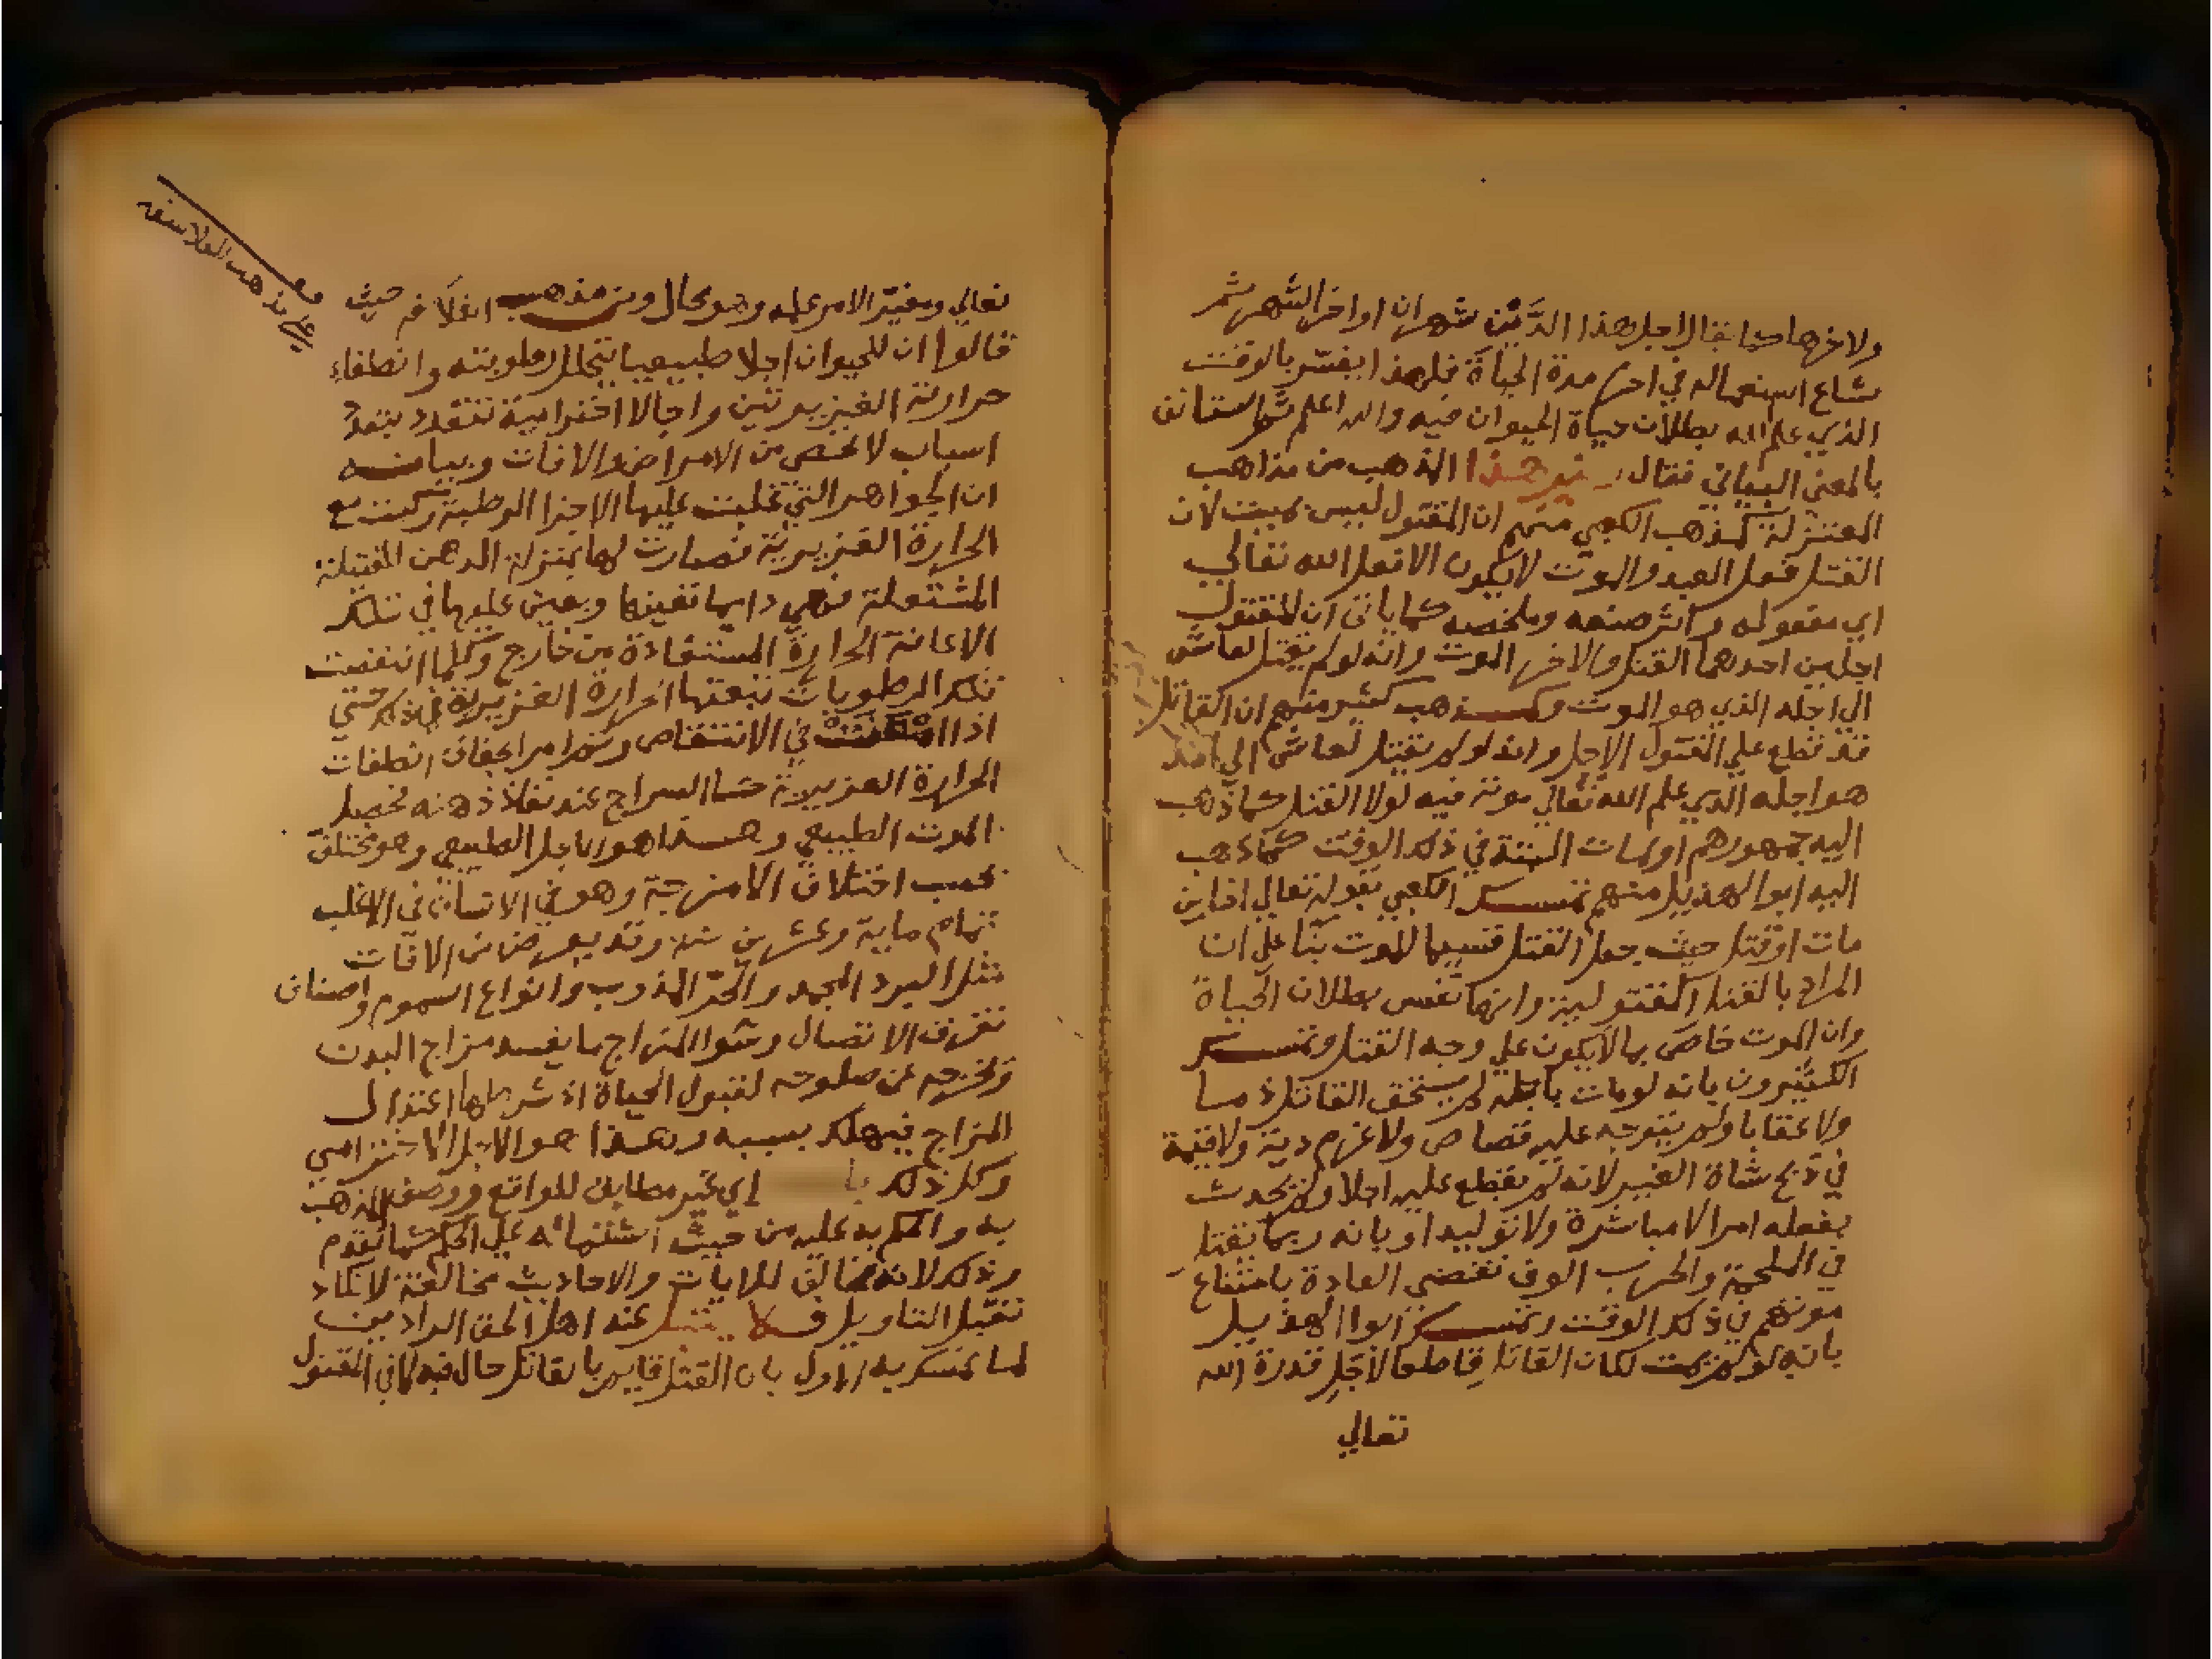 ولاخرها كما يقال اجل هذا الدَّيْن شهران او اخر الشهر ثم
شاع استعماله في اخر مدة الحياة فلهذا يفسر بالوقت
الذي علم الله بطلان حياة الحيوان فيه والله اعلم ثم استانف
بالمعني البياني فقال هذا المذهب من مذاهب
المعتزلة كمذهب الكعبي منهم ان المقتول ليس بميت لان
القتل فعل العبد والموت لا يكون الا فعل الله تعالي
اي مفعوله واثر صنعه وملخصه كما ياتي ان للمقتول
اجلين احدهما القتل والاخر الموت وانه لو لم يقتل لعاش
الي اجله الذي هو الموت وكمذهب كثير منهم ان القاتل
قد قطع علي المقتول الاجل وانه لو لم يقتل لعاش الي امد
هو اجله الذي علم الله تعالي موته فيه لولا القتل كما ذهب
اليه جمهورهم او لمات البتة في ذلك الوقت كما ذهب
اليه ابوا الهذيل منهم تمسك الكعبي بقوله تعالي افاين
مات او قتل حيث جعل القتل قسيما للموت بنا علي ان
المراد بالقتل المقتولية وانها نفس بطلان الحياة
وان الموت خاص بما لا يكون علي وجه القتل وتمسك
الكثيرون بانه لو مات باجله لم يستحق القاتل ذما
ولا عقابا ولم يتوجه عليه قصاص ولا غرم دية ولا قيمة
في ذبح شاة الغير لانه لم يقطع عليه اجلا ولم يحدث
بفعله امرا لا مباشرة ولا توليدا وبانه ربما يقتل
في الملحمة والحرب الوف تقضي العادة بامتناع
موتهم في ذلك الوقت وتمسك ابوا الهذيل
بانه لو لم يمت لكان القاتل قاطعا لاجل قدره الله
تعالي
تعالي ومغير الامر علمه وهو محال ومن مذهب الفلاسفة حيث
قالوا ان للحيوان اجلا طبيعيا بتحلل رطوبته وانطفاء
حرارته الغريزيتين واجالا اخترامية تتعدد بتعدد
اسباب لا تحصي من الامراض والافات وبيانه
ان الجواهر التي غلبت عليها الاجزا الرطبة ركبت مع
الحرارة الغريزية فصارت لها بمنزلة الدهن للفتيلة
المشتعلة فهي دايما تفنيها ويعين عليها في تلك
الاعانة الحرارة المستفادة من خارج وكلما انتقصت
تلك الرطوبات تبعتها الحرارة الغريزية في ذلك حتي
اذا في الانتقاص انطفات
الحرارة الغريزية السراج عند نفاذ دهنه فحصل
الموت الطبيعي وهذا هو الاجل الطبيعي وهو مختلف
بحسب اختلاف الامزجة وهو في الانسان في الاغلب
تمام ماية وعشرين سنة وقد يعرض من الافات
مثل البرد المجمد والحر المذوب وانواع السموم واصناف
تفرق الاتصال وسوا المزاج ما يفسد مزاج البدن
ويخرجه عن صلوحه لقبول الحياة اذ شرطها اعتدال
المزاج فيهلك بسببه وهذا هو الاجل الاخترامي
وكل ذلك با اي غير مطابق للواقع ووصف المذهب
به والحكم به عليه من حيث اشتماله علي الحكم كما تقدم
وذلك لانه مخالف للايات والاحاديث مخالفة لا تكاد
تقبل التاويل فلا يقبل عند اهل الحق الرادين
لما تمسك به الاول بان القتل قايم بالقاتل حال فيه لا في المقتول
مذهب الفلاسفة